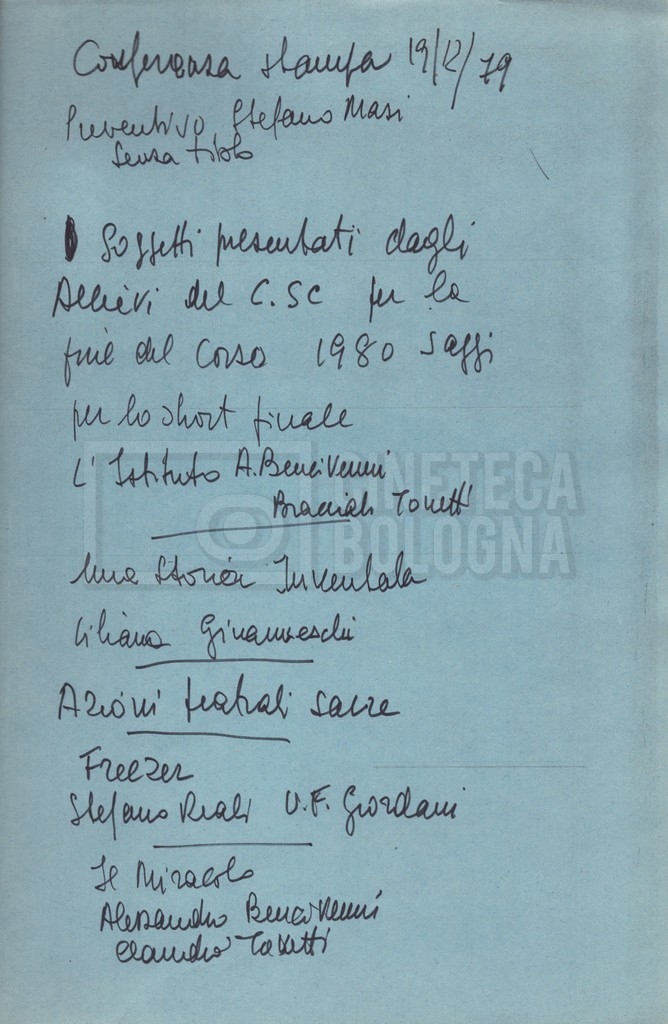 Conferenza stampa 19/12/79
Preventivo Stefano Masi
Senza titolo
Soggetti presentati dagli
Allievi del C.SC per la
fine del Corso 1980 saggi
per lo short finale
L'Istituto A. Bencivenni
Tonetti
CINETECA
BOLOGNA
Una Storia Inventata
Liliana Ginanneschi
Azioni teatrali sacre
Freezer
Stefano Reali U.F. Giordani
Il Miracolo
Alessandro Bencivenni
Claudio